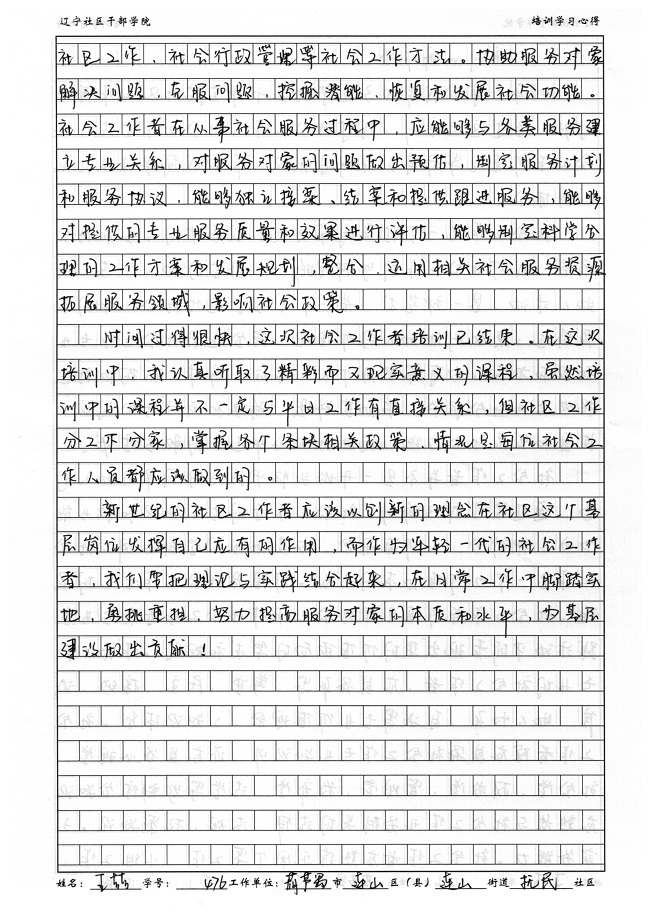 辽宁社区干部学院 培训学习心得
社区工作、社会行政管理等社会工作方法。协助服务对象
解决问题,克服问题,挖掘潜能,恢复和发展社会功能。
社会工作者在从事社会服务过程中,应能够与各类服务建
立专业关系,对服务对象的问题做出预估,制定服务计划
和服务协议,能够独立接案、结案和提供跟进服务,能够
对提供的专业服务质量和效果进行评估,能够制定科学合
理的工作方案和发展规划,整合、运用相关社会服务资源
拓展服务领域,影响社会政策。
时间过得很快,这次社会工作者培训已结束。在这次
培训中,我认真听取了精彩而又现实意义的课程,虽然培
训中的课程并不一定与平日工作有直接关系,但社区工作
分工不分家,掌握各个条块相关政策、情况是每位社会工
作人员都应该做到的。
新世纪的社区工作者应该以创新的理念在社区这个基
层岗位发挥自己应有的作用,而作为年轻一代的社会工作
者,我们要把理论与实践结合起来,在日常工作中脚踏实
地,勇挑重担,努力提高服务对象的本质和水平,为基层
建设做出贡献!
姓名:王 学号:476 工作单位:葫芦岛市 连山区(县) 连山 街道 抗民 社区